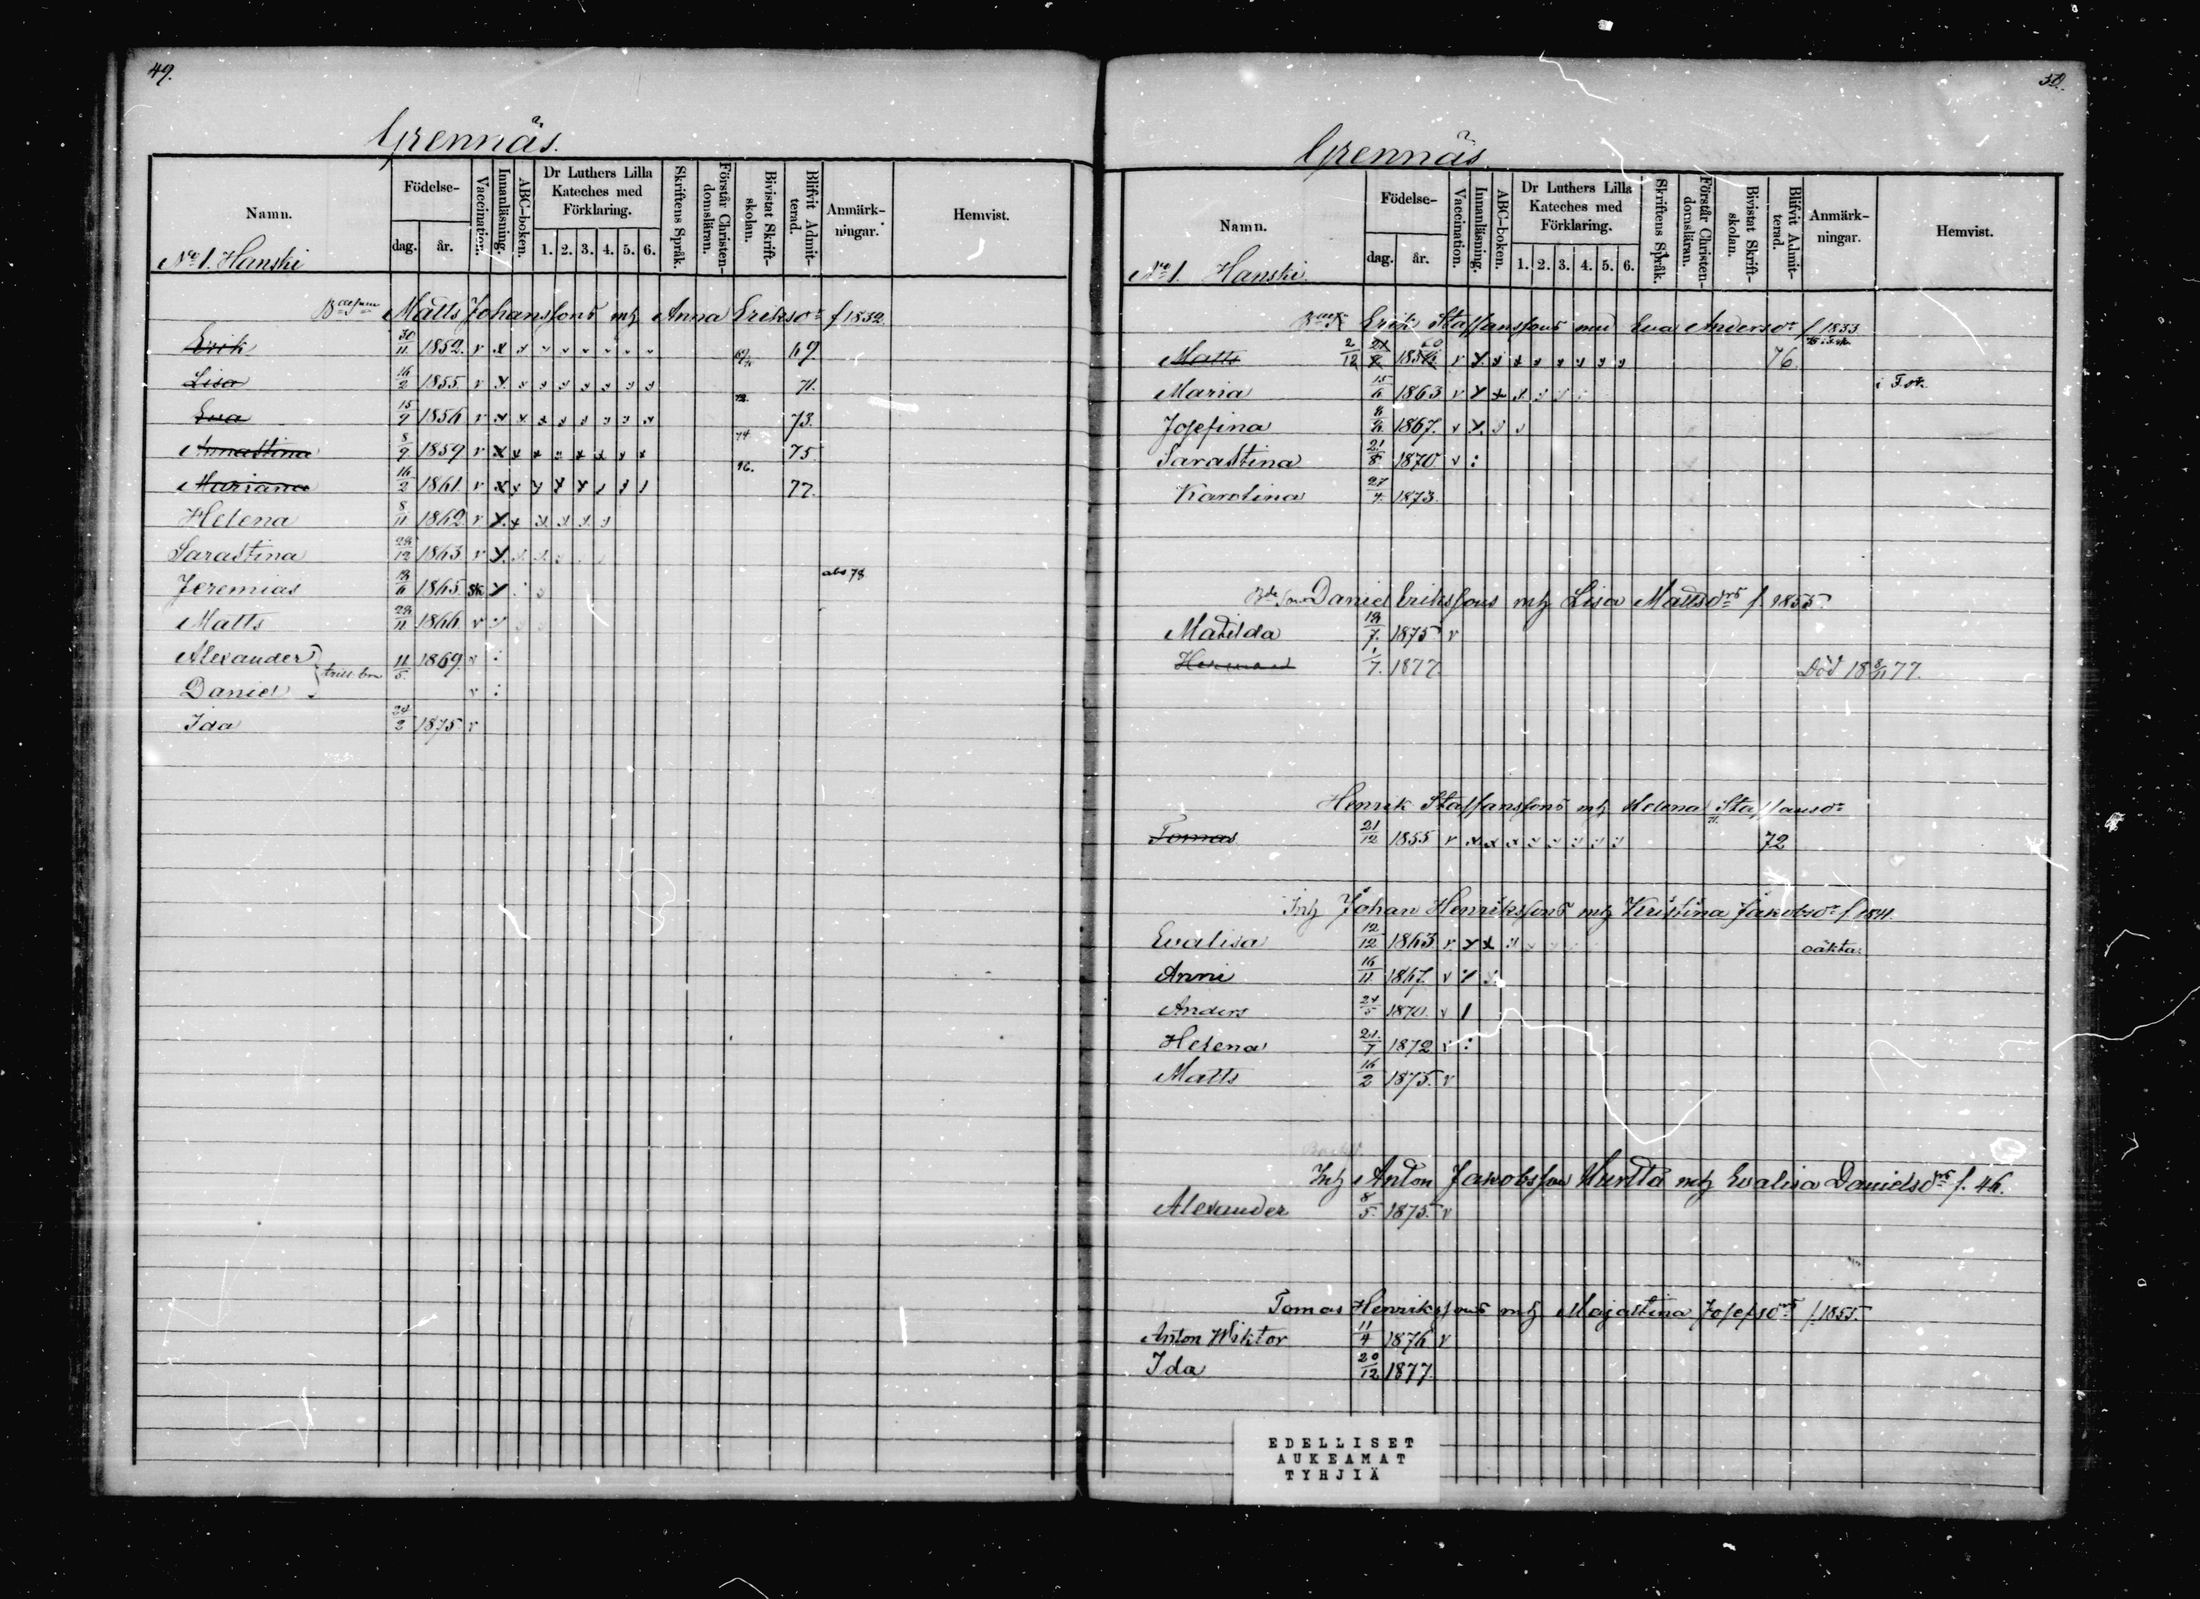 49.
Grennäs.
Namn.
Födelse-
dag.
år.
Vaccination.
Innanläsning.
ABC-boken.
Dr Luthers Lilla
Kateches med
Förklaring.
1. 2. 3. 4. 5. 6.
Skriftens Språk.
Förstår Christen-
domsläran.
Bivistat Skrift-
skolan.
Blifvit Admit-
terad.
Anmärk-
ningar.
Hemvist.
No 1. Hanski
Matts Johanssons mh Anna Eriksdr f 1832.
Erik 30/11 1852. v 69.
Lisa 16/2 1855. v 71.
Eva 15/9 1856 v 72. 73.
Annastina 8/9 1859 v 74 75.
Mariana 16/2 1861. v 76. 77.
Helena 8/11 1862. v
Sarastina 24/12 1863. v
Jeremias 1865. abs 78
Matts 24/11 1866. v
Alexander 11/5. 1869. v
Daniel v
Ida 24/2 1875 v
50.
Grennäs
Namn.
Födelse-
dag.
år.
Vaccination.
Innanläsning.
ABC-boken.
Dr Luthers Lilla
Kateches med
Förklaring.
1. 2. 3. 4. 5. 6.
Skriftens Språk.
Förstår Christen-
domsläran.
Bivistat Skrift-
skolan.
Blifvit Admit-
terad.
Anmärk-
ningar.
Hemvist.
No 1. Hanski
Erik Staffanssons med Eva Andersdr f. 1833
Matts 2/12 v 76.
Maria 15/6 1863 v
Josefina 1867. v
Sarastina 21/8 1870 v
Karolina 27/4. 1873.
Daniel Erikssons mh Lisa Mattsdr f. 1855.
Matilda 1875 v
Herman 1/7. 1877. Död 18 77.
Henrik Staffanssons mh Helena Staffansdr
Tomas 21/12 1855 v 71. 72
Inh Johan Henrikssons mh Kristina Jakobsdr f. 1841.
Evalisa 12/12 1863. v oäkta.
Anni 16/11 1867. v
Anders 24/5 1870. v
Helena 21/7 1872 v
Matts 16/2 1875. v
Inh Anton Jakobsson Hurtta mh Evalisa Danielsdr f. 46.
Alexander 8/5. 1875. v
Tomas Henrikssons mh Majastina Josefsdr f. 1855.
Anton Wiktor 11/4 1876 v
Ida 20/12 1877.
EDELLISET
AUKEAMAT
TYHJIÄ